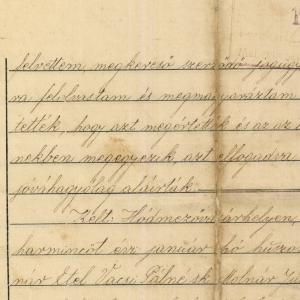 felvettem, megkereső szerződő jogügy
ra felolvastam és megmagyaráztam
tették, hogy azt megértették és az az
nekben megegyezik, azt elfogadva
jóváhagyólag aláírták.
Kelt: Hódmezővásárhelyen,
harmincöt évi január hó húszo
nár Etel Vacsi Pálné sk. Molnár